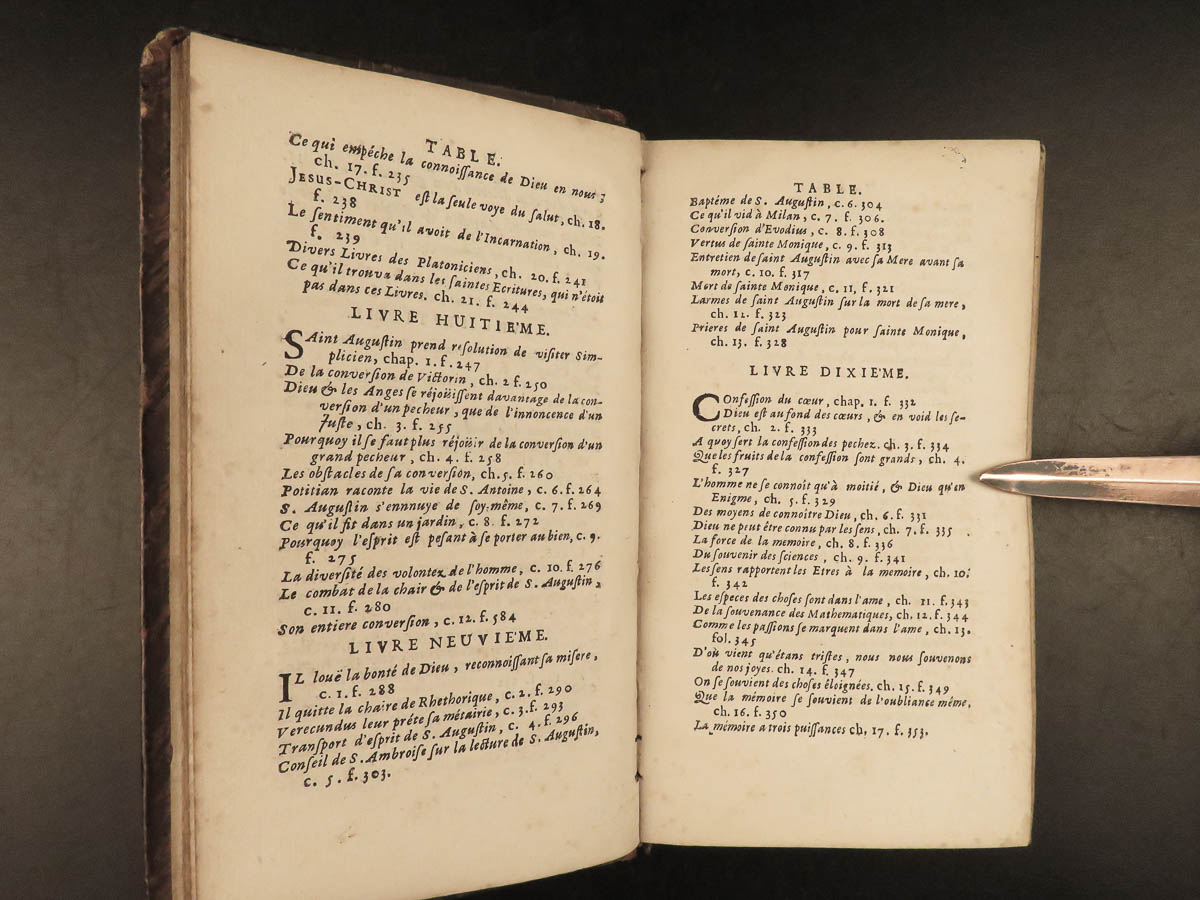 TABLE.
Ce qui empéche la connoiſſance de Dieu en nous ;
ch. 17. f. 235
JESUS-CHRIST eſt la ſeule voye du ſalut, ch. 18.
f. 238
Le ſentiment qu'il avoit de l'Incarnation, ch. 19.
f. 239
Divers Livres des Platoniciens, ch. 20. f. 241
Ce qu'il trouva dans les ſaintes Ecritures, qui n'étoit
pas dans ces Livres. ch. 21. f. 244
LIVRE HUITIE'ME.
SAint Auguſtin prend reſolution de viſiter Sim-
plicien, chap. 1. f. 247
De la converſion de Victorin, ch. 2 f. 250
Dieu & les Anges ſe réjoüiſſent davantage de la con-
verſion d'un pecheur, que de l'innoncence d'un
Juſte, ch. 3. f. 255
Pourquoy il ſe faut plus réjoüir de la converſion d'un
grand pecheur, ch. 4. f. 258
Les obſtacles de ſa converſion, ch. 5. f. 260
Potitian raconte la vie de S. Antoine, c. 6. f. 264
S. Auguſtin s'ennnuye de ſoy-même, c. 7. f. 269
Ce qu'il fit dans un jardin, c. 8. f. 272
Pourquoy l'eſprit eſt peſant à ſe porter au bien, c. 9.
f. 275
La diverſité des volontez de l'homme, c. 10. f. 276
Le combat de la chair & de l'eſprit de S. Auguſtin,
c. 11. f. 280
Son entiere converſion, c. 12. f. 584
LIVRE NEUVIE'ME.
IL louë la bonté de Dieu, reconnoiſſant ſa miſere,
c. 1. f. 288
Il quitte la chaire de Rhethorique, c. 2. f. 290
Verecundus leur préte ſa métairie, c. 3. f. 293
Tranſport d'eſprit de S. Auguſtin, c. 4. f. 296
Conſeil de S. Ambroiſe ſur la lecture de S. Auguſtin,
c. 5. f. 303.
TABLE.
Baptéme de S. Auguſtin, c. 6. 304
Ce qu'il vid à Milan, c. 7. f. 306.
Converſion d'Evodius, c. 8. f. 308
Vertus de ſainte Monique, c. 9. f. 313
Entretien de ſaint Auguſtin avec ſa Mere avant ſa
mort, c. 10. f. 317
Mort de ſainte Monique, c. 11. f. 321
Larmes de ſaint Auguſtin ſur la mort de ſa mere,
ch. 12. f. 323
Prieres de ſaint Auguſtin pour ſainte Monique,
ch. 13. f. 328
LIVRE DIXIE'ME.
COnfeſſion du cœur, chap. 1. f. 332
Dieu eſt au fond des cœurs, & en void les ſe-
crets, ch. 2. f. 333
A quoy ſert la confeſſion des pechez. ch. 3. f. 334
Que les fruits de la confeſſion ſont grands, ch. 4.
f. 327
L'homme ne ſe connoît qu'à moitié, & Dieu qu'en
Enigme, ch. 5. f. 329
Des moyens de connoître Dieu, ch. 6. f. 331
Dieu ne peut être connu par les ſens, ch. 7. f. 335
La force de la memoire, ch. 8. f. 336
Du ſouvenir des ſciences, ch. 9. f. 341
Les ſens rapportent les Etres à la memoire, ch. 10.
f. 342
Les eſpeces des choſes ſont dans l'ame, ch. 11. f. 343
De la ſouvenance des Mathematiques, ch. 12. f. 344
Comme les paſſions ſe marquent dans l'ame, ch. 13.
fol. 345
D'où vient qu'étans triſtes, nous nous ſouvenons
de nos joyes. ch. 14. f. 347
On ſe ſouvient des choſes éloignées. ch. 15. f. 349
Que la mémoire ſe ſouvient de l'oubliance même,
ch. 16. f. 350
La mémoire a trois puiſſances ch. 17. f. 353.